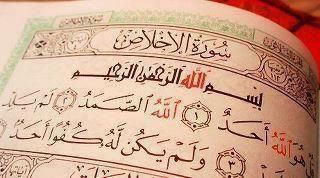 سُورَةُ الإِخْلَاصِ
بِسْمِ اللَّهِ الرَّحْمَٰنِ الرَّحِيمِ
هُوَ اللَّهُ أَحَدٌ ١ اللَّهُ الصَّمَدُ ٢ لَمْ يَلِدْ
٣ وَلَمْ يَكُن لَّهُ كُفُوًا أَحَدٌ